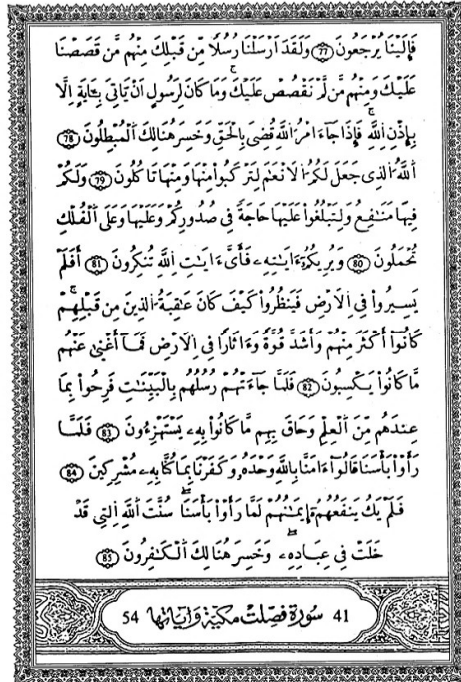 فَإِلَيْنَا يُرْجَعُونَ 77 وَلَقَدَ اَرْسَلْنَا رُسُلًا مِّن قَبْلِكَ مِنْهُم مَّن قَصَصْنَا
عَلَيْكَ وَمِنْهُم مَّن لَّمْ نَقْصُصْ عَلَيْكَ وَمَا كَانَ لِرَسُولٍ اَنْ يَّاتِيَ بِـَٔايَةٍ اِلَّا
بِإِذْنِ اِللَّهِ فَإِذَا جَآءَ امْرُ اُللَّهِ قُضِيَ بِالْحَقِّ وَخَسِرَ هُنَالِكَ اَلْمُبْطِلُونَ 78
اَللَّهُ اُلذِى جَعَلَ لَكُمُ اُلَانْعَٰمَ لِتَرْكَبُواْ مِنْهَا وَمِنْهَا تَاكُلُونَ 79 وَلَكُمْ
فِيهَا مَنَٰفِعُ وَلِتَبْلُغُواْ عَلَيْهَا حَاجَةً فِى صُدُورِكُمْ وَعَلَيْهَا وَعَلَى اَلْفُلْكِ
تُحْمَلُونَ 80 وَيُرِيكُمُۥٓ ءَايَٰتِهِۦ فَأَىَّ ءَايَٰتِ اِللَّهِ تُنكِرُونَ 81 أَفَلَمْ
يَسِيرُواْ فِى اِلَارْضِ فَيَنظُرُواْ كَيْفَ كَانَ عَٰقِبَةُ اُلذِينَ مِن قَبْلِهِمْ
كَانُوٓاْ أَكْثَرَ مِنْهُمْ وَأَشَدَّ قُوَّةً وَءَاثَارًا فِى اِلَارْضِ فَمَآ أَغْنَىٰ عَنْهُم
مَّا كَانُواْ يَكْسِبُونَ 82 فَلَمَّا جَآءَتْهُمْ رُسُلُهُم بِالْبَيِّنَٰتِ فَرِحُواْ بِمَا
عِندَهُم مِّنَ اَلْعِلْمِ وَحَاقَ بِهِم مَّا كَانُواْ بِهِۦ يَسْتَهْزِءُونَ 83 فَلَمَّا
رَأَوْاْ بَأْسَنَا قَالُوٓاْ ءَامَنَّا بِاللَّهِ وَحْدَهُۥ وَكَفَرْنَا بِمَا كُنَّا بِهِۦ مُشْرِكِينَ 84
فَلَمْ يَكُ يَنفَعُهُمُۥٓ إِيمَٰنُهُمْ لَمَّا رَأَوْاْ بَأْسَنَا سُنَّتَ اَللَّهِ اِلتِى قَدْ
خَلَتْ فِى عِبَادِهِۦ وَخَسِرَ هُنَالِكَ اَلْكَٰفِرُونَ 85
41 سورة فصلت مكية وآياتها 54